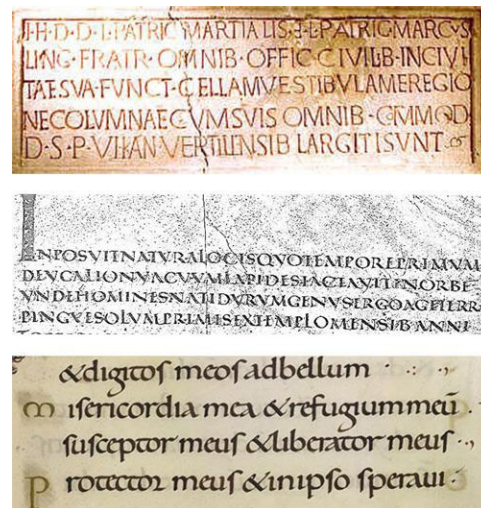 I·H·D·D·L·PATRIC MARTIALIS·E·L·PATRIC MARCVS
LING·FRATR·OMNIB·OFFIC·CIVILB·INCIVI
TAESVA·FVNCT·CELLAMVESTIBVLAMEREGIO
NECOLVMNAECVMSVIS OMNIB·COMMOD
D·S·P·VIKAN·VERTILENSIB LARGITISVNT
INPOSVITNATVRALOCISQVOTEMPOREPRIMVM
DEVCALIONVACVVMLAPIDESIACTAVITINORBE
VNDEHOMINESNATIDVRVMGENVSERGOAGETERR
PINGVESOLVMPRIMISEXTEMPLOMENSIBANNI
&digitoſ meoſ adbellum · .: ·,
m iſericordia mea &refugium meū ·
ſuſceptor meuſ &liberator meuſ ··,
p rotector meuſ &inipſo ſperaui ·